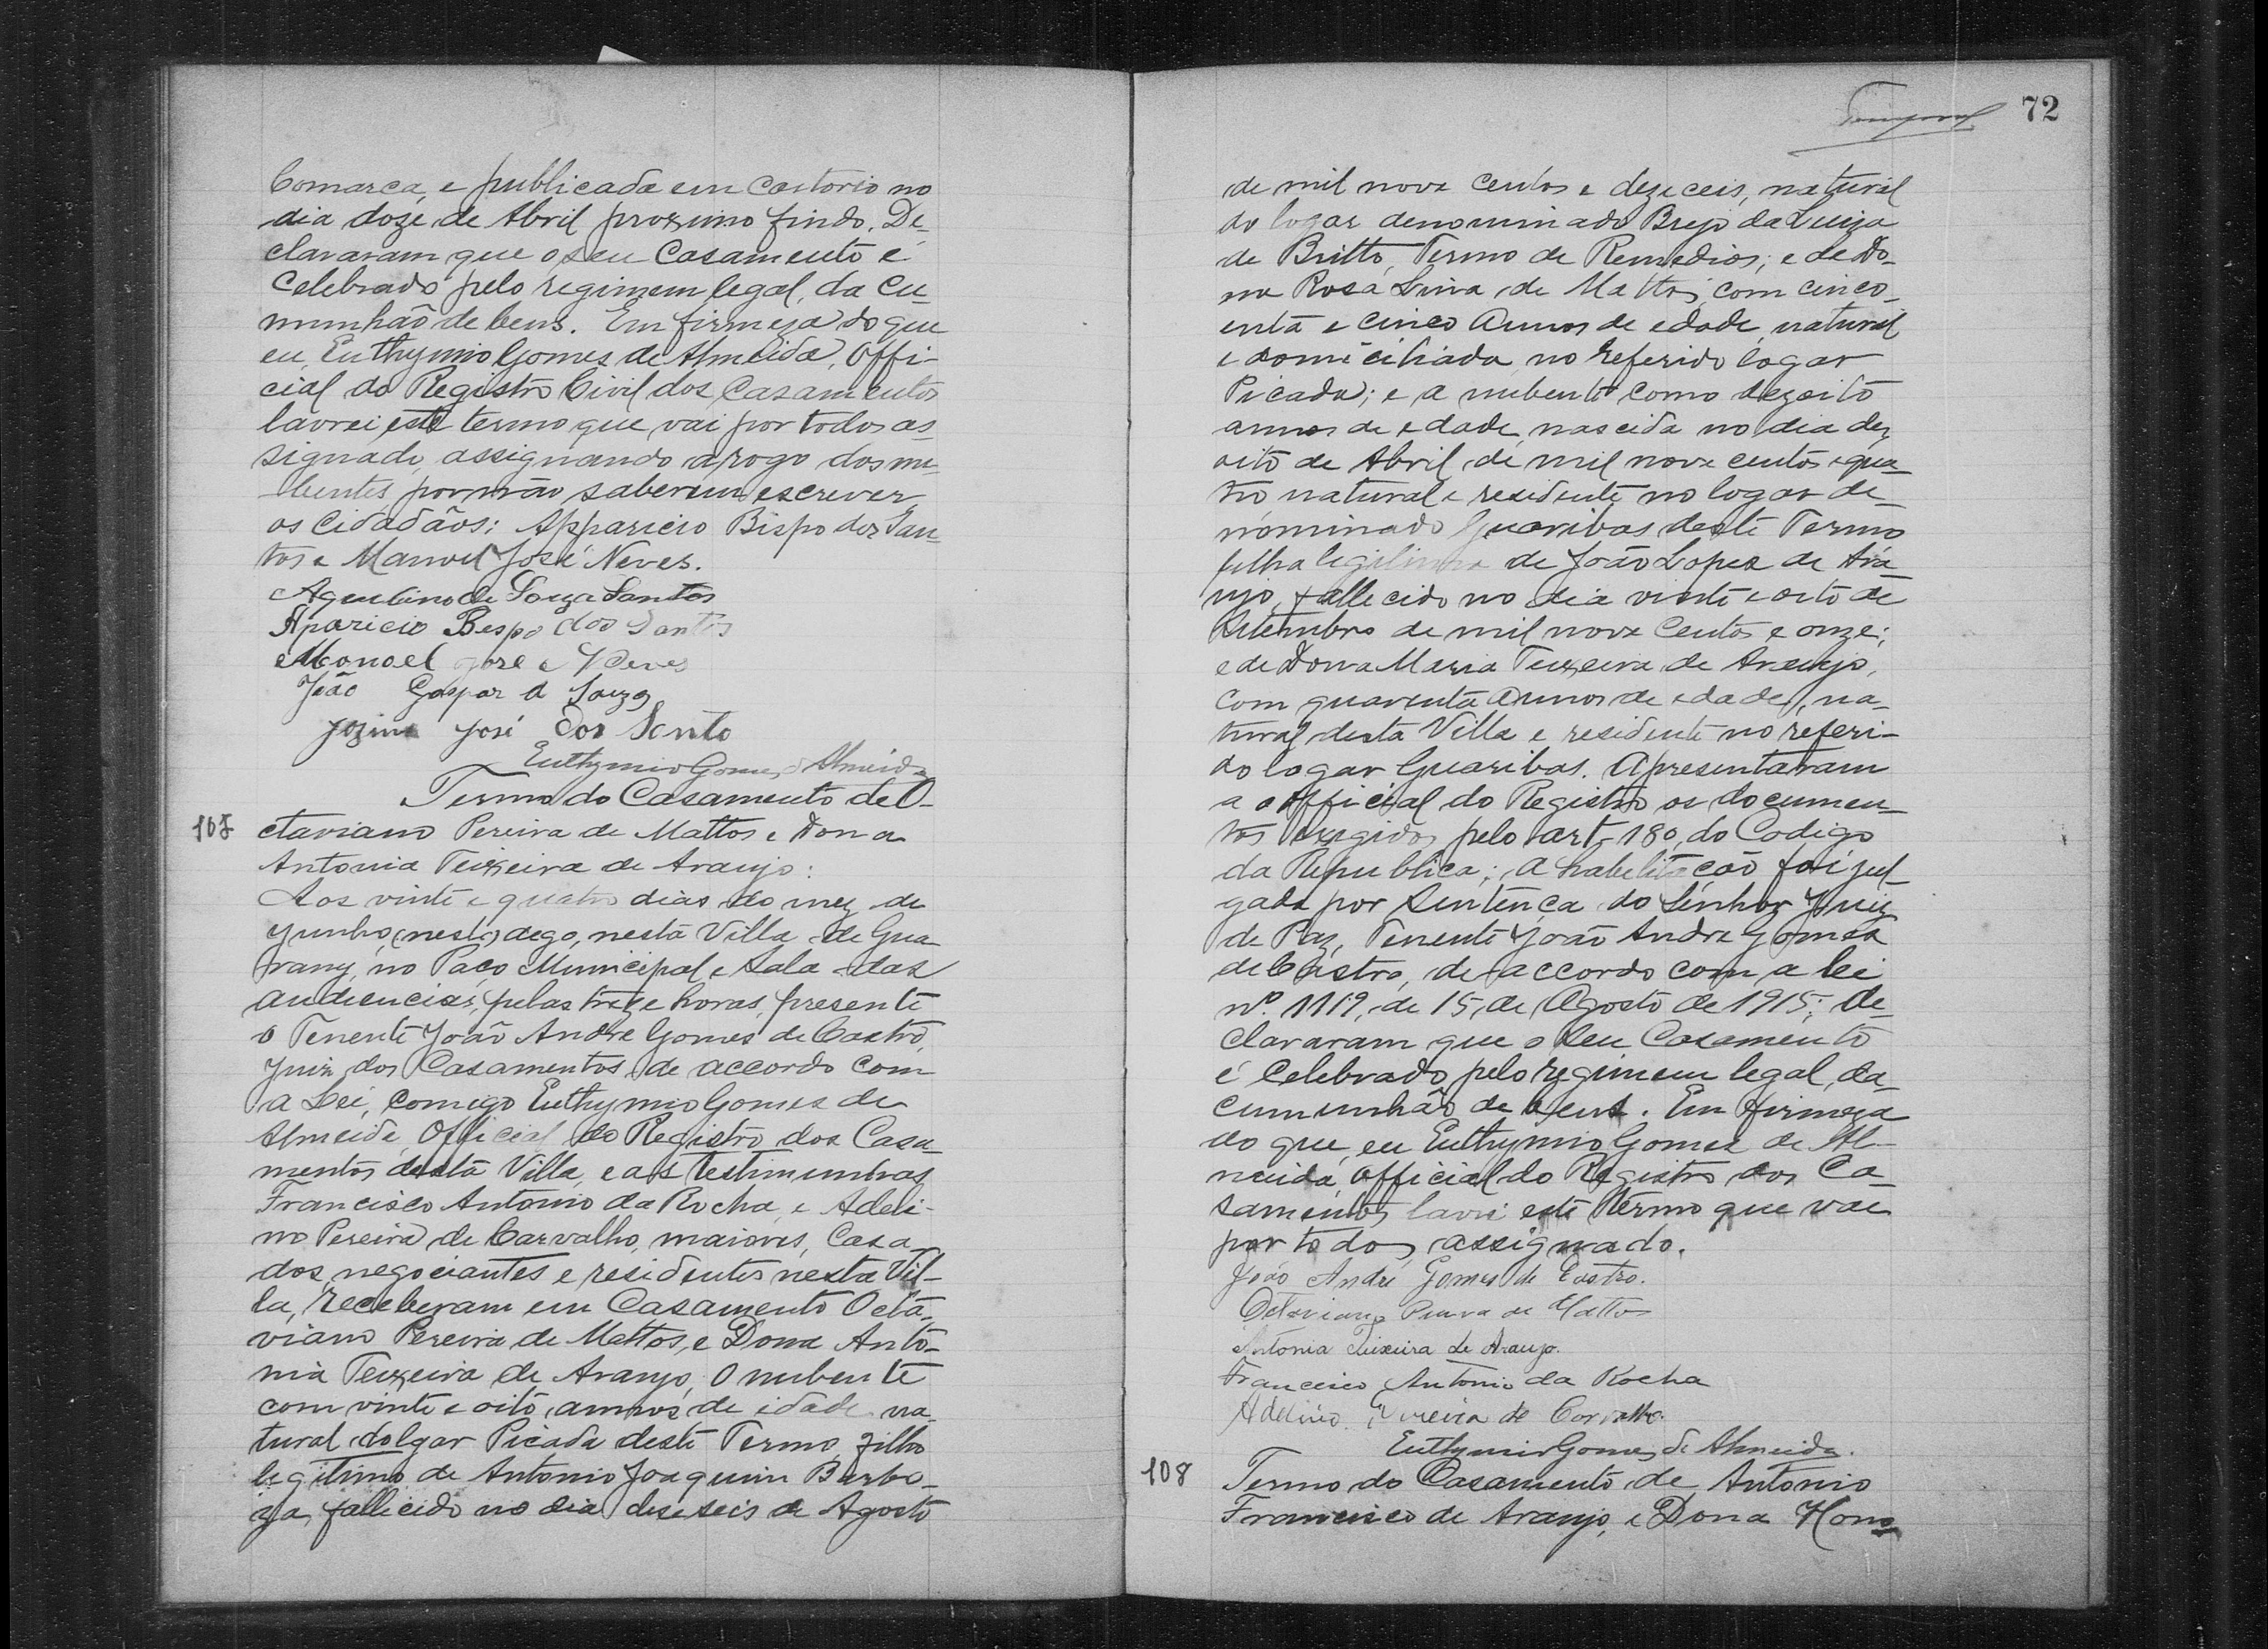 Comarca, e publicada em Cartorio no
dia doze de Abril proximo findo. De-
clararam que o seu Casamento é
Celebrado pelo regimem legal, da Cu-
munhão de bens. Em firmeza do que
eu, Euthymio Gomes de Almeida, Offi-
cial do Registro Civil dos Casamentos
lavrei este termo que vai por todos as-
signado, assignando a rogo dos nu-
bentes por não saberem escrever
os Cidadãos: Apparicio Bispo dos San-
tos e Manoel José Neves.
de Souza Santos
Aparicio Bespo dos Santos
Manoel Neves
João Gaspar d Souza
José dos Santo
Euthymio Gomes d Almeida
Termo do Casamento de O-
107 ctaviano Pereira de Mattos e Dona
Antonia Teixeira de Araujo:
Aos vinte e quatro dias do mez de
Junho, (neste) dego, nesta Villa de Gua-
rany, no Paço Municipal e Sala das
audiencias, pelas treze horas, presente
o Tenente João Andre Gomes de Castro,
Juiz dos Casamentos de accordo com
a Lei, comigo Euthymio Gomes de
Almeida, Official do Registro dos Casa-
mentos desta Villa, e as testimunhas
Francisco Antonio da Rocha, e Adeli-
no Pereira de Carvalho, maiores, Casa-
dos, negociantes e residentes nesta Vil-
la, receberam em Casamento Octa-
viano Pereira de Mattos, e Dona Anto-
nia Teixeira de Araujo, O nubente
com vinte e oito annos de idade na-
tural do lgar Picada deste Termo filho
legitimo de Antonio Joaquim Barbo-
za, fallecido no dia deseseis de Agosto
72
de mil nove centos e dezeceis, natural
do logar denominado Brejo da Luiza
de Britto, Termo de Remedios; e de Do-
na Rosa Lina de Mattos, com cinco-
enta e cinco annos de edade, natural
e domiciliada no referido logar
Picada; e a nubente como dezoito
annos de edade, nascida no dia dez
oito de Abril de mil nove centos e qua-
tro natural e residente no logar de-
nominado Guaribas deste Termo
filha legitima de João Lopes de Ara-
ujo, fallecido no dia vinte e oito de
Setembro de mil nove centos e onze;
e de Dona Maria Teixeira de Araujo,
com quarenta annos de edade, na-
tural desta Villa e residente no referi-
do logar Guaribas. Apresentaram
a o official do Registro os documen-
tos exegidos pelo art. 180, do Codigo
da Republica; a habilitação foi jul-
gada por sentença do Senhor Juiz
de Paz, Tenente João Andre Gomes
de Castro, de accordo com a lei
nº. 1119, de 15 de Agosto de 1915; De-
clararam que o seu Casamento
é Celebrado pelo regimem legal, da
cumunhão de bens. Em firmeza
do que, eu Euthymio Gomes de Al-
meida, official do Registro dos Ca-
samentos lavrei este termo que vae
por todos assignado.
João André Gomes de Castro.
Octaviano Pereira de Mattos
Antonia Teixeira de Araujo.
Francisco Antonio da Rocha
Adelino Pereira de Carvalho.
Euthymio Gomes de Almeida.
108 Termo do Casamento de Antonio
Francisco de Araujo, e Dona Hono-